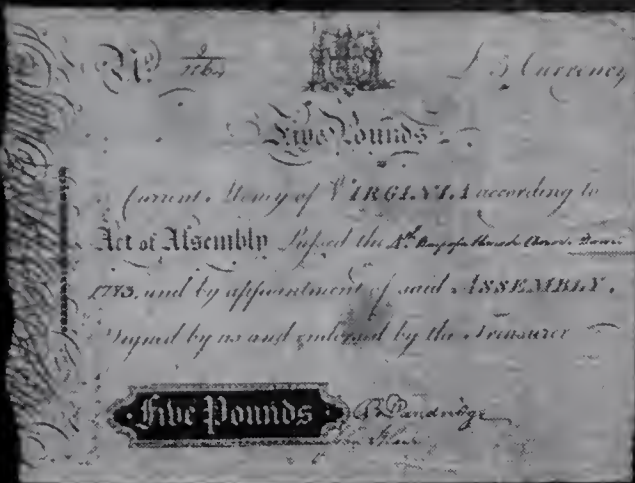 No.
£5 Currency
Five Pounds
Current Money of VIRGINIA according to
Act of Assembly Passed the 4th March
1773, and by appointment of said ASSEMBLY.
Signed by us and endorsed by the Treasurer
Five Pounds